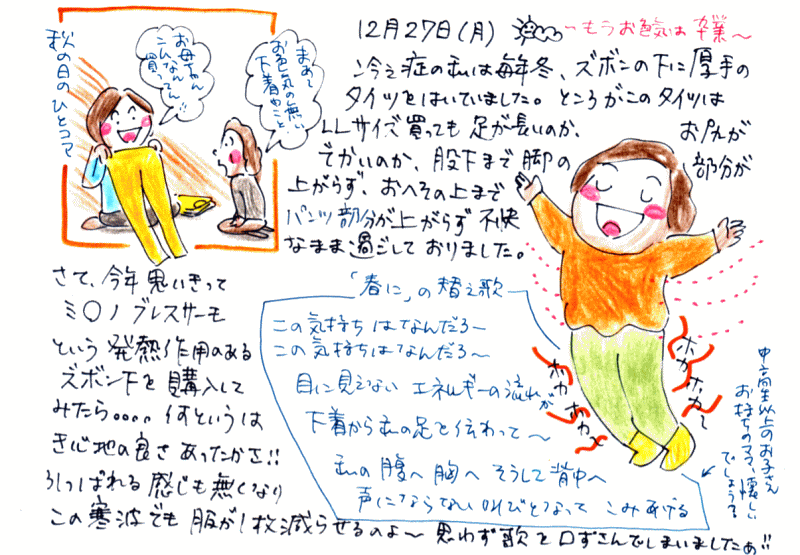 12月27日(月)
～もうお色気は卒業～
秋の日のひとコマ
お母ちゃん
こんなん
買ってん!!
まあ～
お色気の無い
下着やこと
冷え症の私は毎年冬、ズボンの下に厚手の
タイツをはいていました。ところがこのタイツは
LLサイズ買っても足が長いのか、お尻が
でかいのか、股下まで脚の部分が
上がらず、おへその上まで
パンツ部分が上がらず不快
なまま過ごしておりました。
さて、今年思いきって
ミ○ノブレスサーモ
という発熱作用のある
ズボン下を購入して
みたら。。。。何というは
き心地の良さあったかさ!!
引っぱれる感じも無くなり
この寒波でも服が1枚減らせるのよ～思わず歌を口ずさんでしまいましたぁ!!
「春に」の替え歌
この気持ちはなんだろ～
この気持ちはなんだろ～
目に見えないエネルギーの流れが
下着から私の足を伝わって～
私の腹へ胸へそうして背中へ
声にならない叫びとなってこみあげる
ホカホカ～
ホカホカ～
中高生以上のお子さん
お持ちのママ、懐しい
でしょう?